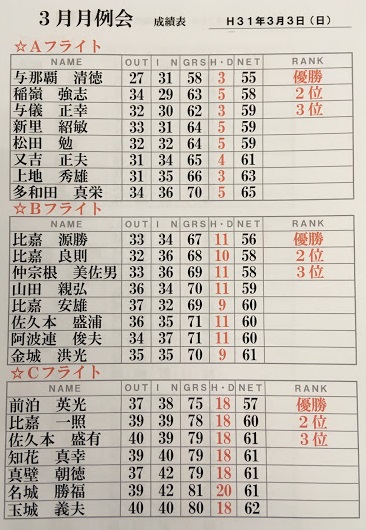 3月月例会 成績表 H31年3月3日（日）
☆Aフライト
NAME OUT I N GRS H・D NET RANK
与那覇 清徳 27 31 58 3 55 優勝
稲嶺 強志 34 29 63 5 58 2位
与儀 正幸 32 30 62 3 59 3位
新里 紹敏 33 31 64 5 59
松田 勉 32 32 64 5 59
又吉 正夫 31 34 65 4 61
上地 秀雄 31 35 66 3 63
多和田 真栄 34 36 70 5 65
☆Bフライト
NAME OUT I N GRS H・D NET RANK
比嘉 源勝 33 34 67 11 56 優勝
比嘉 良則 32 36 68 10 58 2位
仲宗根 美佐男 33 36 69 11 58 3位
山田 親弘 36 34 70 11 59
比嘉 安雄 37 32 69 9 60
佐久本 盛浦 36 35 71 11 60
阿波連 俊夫 34 37 71 11 60
金城 洪光 35 35 70 9 61
☆Cフライト
NAME OUT I N GRS H・D NET RANK
前泊 英光 37 38 75 18 57 優勝
比嘉 一照 39 39 78 18 60 2位
佐久本 盛有 40 39 79 18 61 3位
知花 真幸 39 40 79 18 61
真壁 朝徳 37 42 79 18 61
名城 勝福 39 42 81 20 61
玉城 義夫 40 40 80 18 62